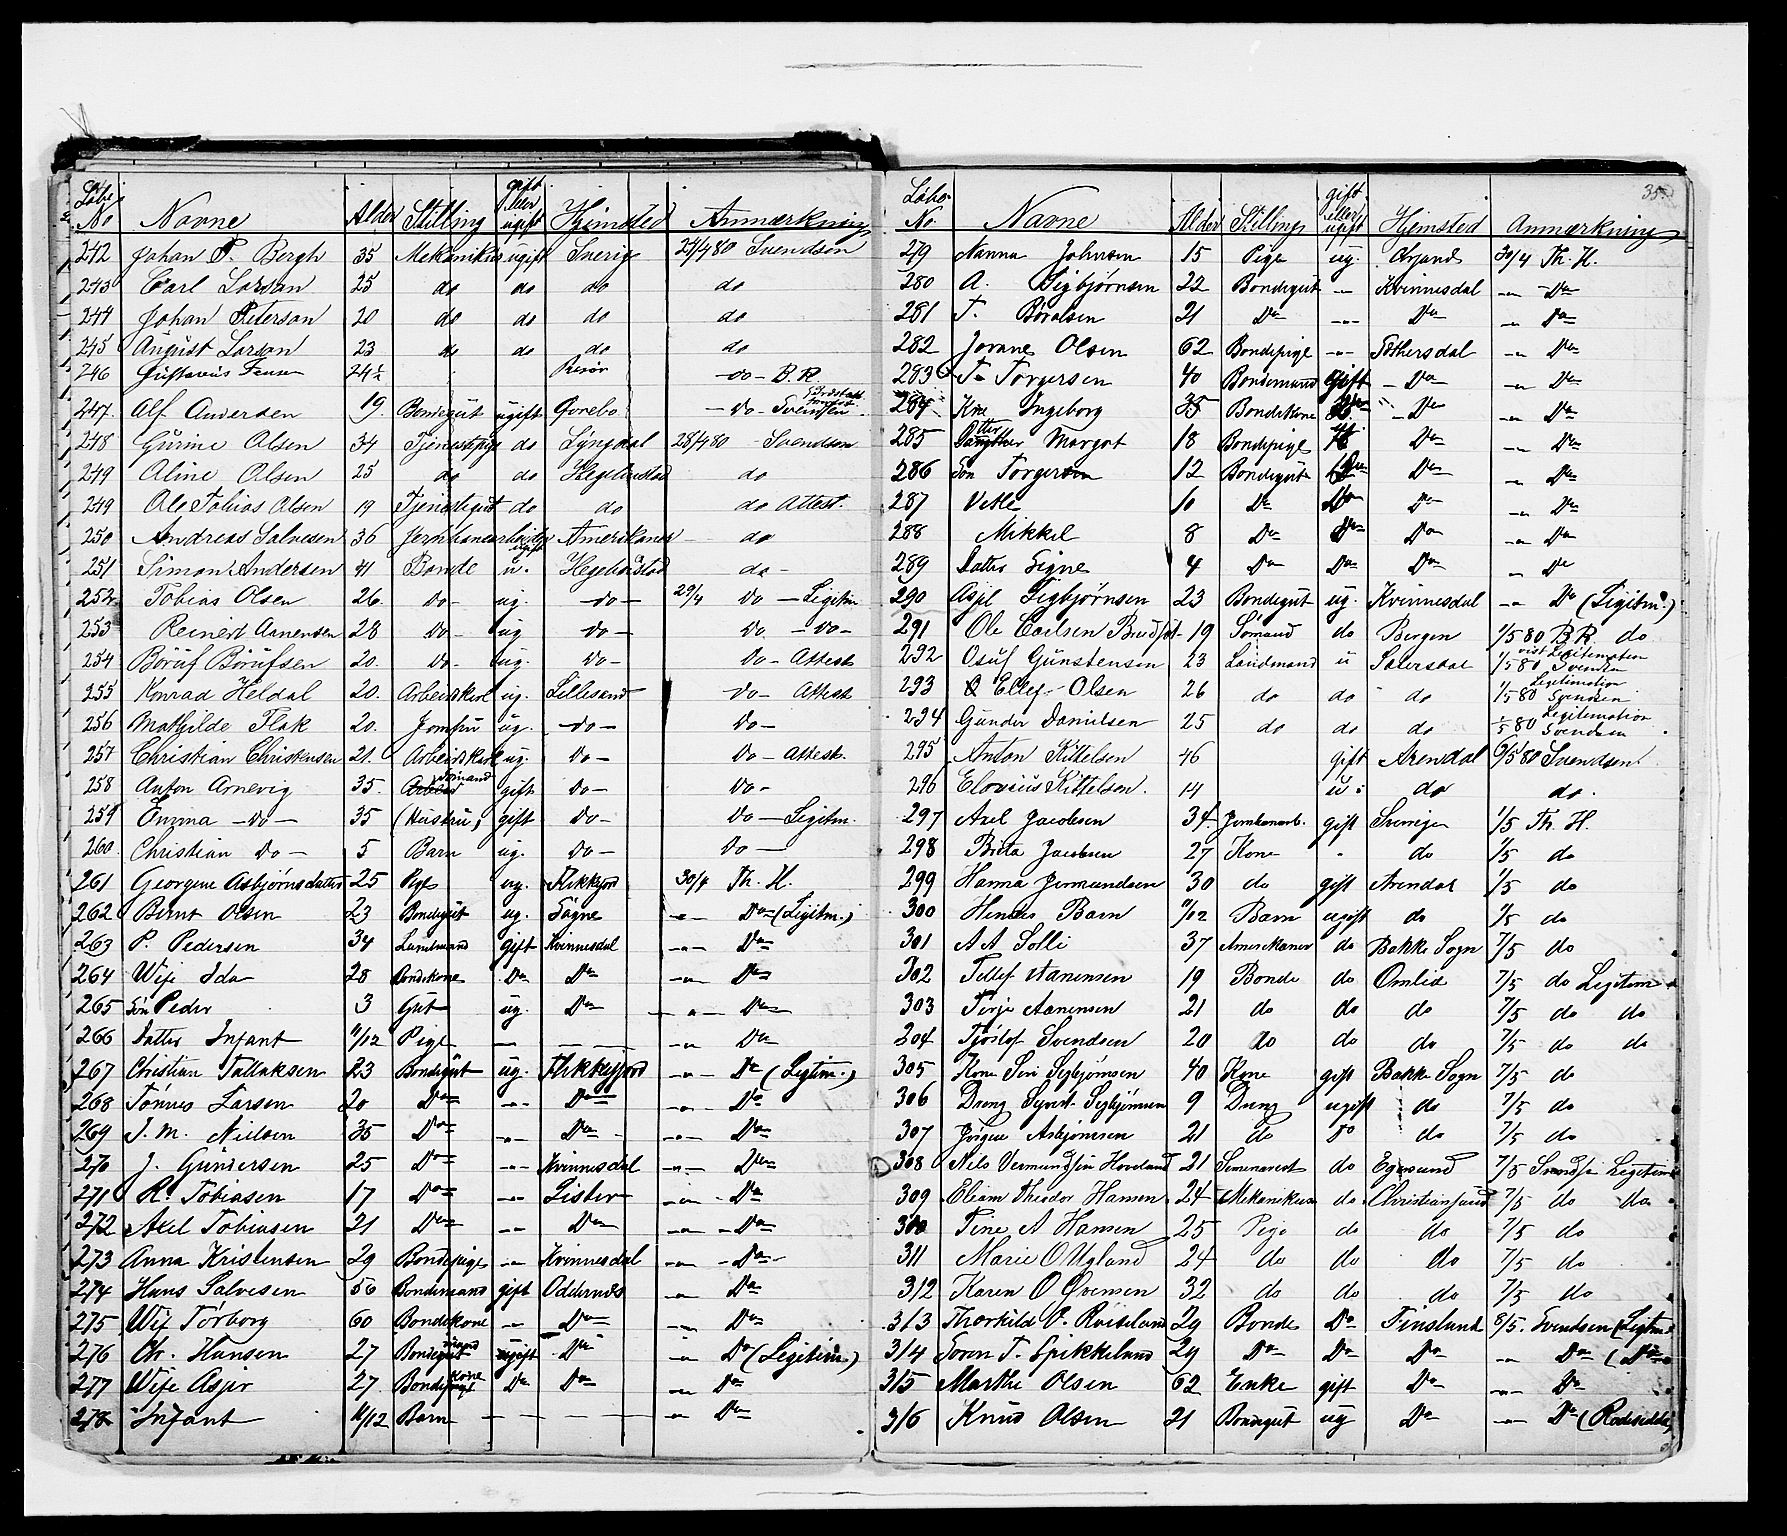 Løbe No Navne Alder Stilling gift eller ugift Hjemsted Anmærkning
242 Johan P. Bergh 35 Mekanikus ugift Sverig 24/4 80 Svendsen
243 Carl Larsan 25 do do do do
244 Johan Petersan 20 do do do do
245 August Larsan 23 do do do do
246 Gustavus 24½ Risør -do- B.R.
247. Alf Andersen 19. Bondegut ugift Øvrebo -do- Svendsen
248 Gurine Olsen 34 Tjenestpige do Lyngdal 28/4 80 Svendsen
249 Aline Olsen 25 do do Hegebostad do
249 Ole Tobias Olsen 19 Tjenestegut do do do Attest.
250 Andreas Salvesen 36 Jernbanearbeider ugift Amerikaner do
251 Simon Andersen 41 Bonde u. Hegebostad do -
252 Tobias Olsen 26. do- ug. -do- 29/4 do - Legitm.
253 Reinert Aanensen 28 do- ug do- do -do-
254 Børuf Børufsen 20. do- ug. do- do- Attest
255 Konrad Heldal 20. Arbeidskarl ug. Lillesand do- Attest
256 Mathilde Flak 20. Jomfru ug. -do- do-
257 Christian Christensen 21. Arbeidskarl ug. do- do- Attest.
258 Anton Arnevig 35. Sømand gift do- do-
259 Emma -do- 35 (Hustru) gift do- do - Legitm.
260. Christian do- 5 Barn ug. do- do-
261 Georgine Asbjørnsdatter 25 Pige ug. Flekkefjord 30/4 Th. H.
262 Bernt Olsen 23 Bondegut ug. Søgne -"- Do (Legitm.)
263 P. Pedersen 34 Landmand gift Kvinnesdal -"- Do
264 Wife Ida 28 Bondekone Do Do -"- Do
265 Søn Peder 3 Gut ug. Do -"- Do
266 Datter Infant 11/12 Pige - - -"- Do
267 Christian Tallaksen 23 Bondegut ug. Flekkefjord -"- Do (Legitm.)
268 Tønnes Larsen 20 Do -"- Do -"- Do
269 J. M. Nielsen 35 Do -"- Do -"- Do
270 J. Gundersen 25 Do -"- Kvinnesdal -"- Do
271 R. Tobiasen 17 Do -"- Lister -"- Do
272 Axel Tobiasen 21 Do -"- Do -"- Do
273 Anna Kristensen 29 Bondepige -"- Kvinnesdal -"- Do
274 Hans Salvesen 56 Bondemand gift Oddernes -"- Do
275 Wife Tørborg 60 Bondekone -"- Do -"- Do
276 Chr. Hansen 27 Bondemand ugift Do -"- Do (Legitim.)
277 Wife Asjer 27. Bondekone Do Do -"- Do
278 Infant 11/12 Barn - - - - -"- Do
35
Løbe No Navne Alder Stilling gift eller ugift Hjemsted Anmærkning
279 Nanna Johnsen 15 Pige ug. 30/4 Th. H.
280 A. Sigbjørnsen 22 Bondegut -"- Kvinnesdal -"- Do
281 T. Børulsen 21 Do -"- Do -"- Do
282 Jorane Olsen 62 Bondepige -"- -"- Do
283 T. Torgersen 40 Bondemand gift - Do -"- Do
284 Kne Ingeborg 35 Bondekone Do - Do -"- Do
285 Datter Margot 18 Bondepige ug. Do -"- Do
286 Søn Torgersen 12 Bondegut Do Do -"- Do
287 Vetle 10 Do Do Do -"- Do
288 Mikkel 8 Do Do Do -"- Do
289 Datter Signe 4 Do Do Do -"- Do
290 Asjel Sigbjørnsen 23 Bondegut ug. Kvinnesdal -"- Do (Legitm.)
291 Ole Carlsen 19 Sømand do Bergen 1/5 80 B.R. do
292 Osuf Gunstensen 23 Landmand u Sætersdal 1/5 80 vist Legitimation Svendsen
293 Ellef Olsen 26 do do do 1/5 80 Legitimation Svendsen
294 Gunder Danielsen 25 do do do 1/5 80 Legitimation Svendsen
295 Anton Kittelsen 46 gift Arendal 6/5 80 Svendsen
296 Elovius Kittelsen. 14 u. do do.
297 Axel Jacobsen 34 Jernbanearb. gift Sverrige 1/5 Th. H.
298 Brita Jacobsen 27 Kone " do 1/5 do
299 Hanna Jermundsen 30 do gift Arendal 1/5 do
300 Hendes Barn 11/12 Barn ugift do 1/5 do
301 A A Solli 37 Amerikaner do Bakke Sogn 7/5 do
302 Tellef Aanensen 19 Bonde do Omlid 7/5 do Legitim
303 Terje Aanensen 21 do do do 7/5 do do
304 Tjøstof Svendsen 20 do do do 7/5 do do
305 Kone Siri Sigbjørnsen 40 Kone gift Bakke Sogn 7/5 do
306 Dreng Sigbjørnsen 9 Dreng ugift do 7/5 do
307 Jørgine Asbjørnsen 21 do do do 7/5 do
308 Nils Vermundsen Hovland 21 do Egersund 7/5 Svendsen Legitim
309 Eliam Theodor Hansen 24 Mekanikus do Christiansund 7/5 do do
310 Tine A Hansen 25 Pige do do 7/5 do
311 Marie O Ugland 24 do do do 7/5 do
312 Karen O Evensen 32 do do do 7/5 do
313 Thorkild O. Røisland 29 Bonde Do Finsland 8/5. Svendsen (Legtm.
314 Søren T. Spikkeland 29 Do Do Do -"- Do (Do
315 Marthe Olsen 62 Enke gift Do -"- Do
316 Knud Olsen 21 Bondegut ug Do -"- Do (Rodeseddel)